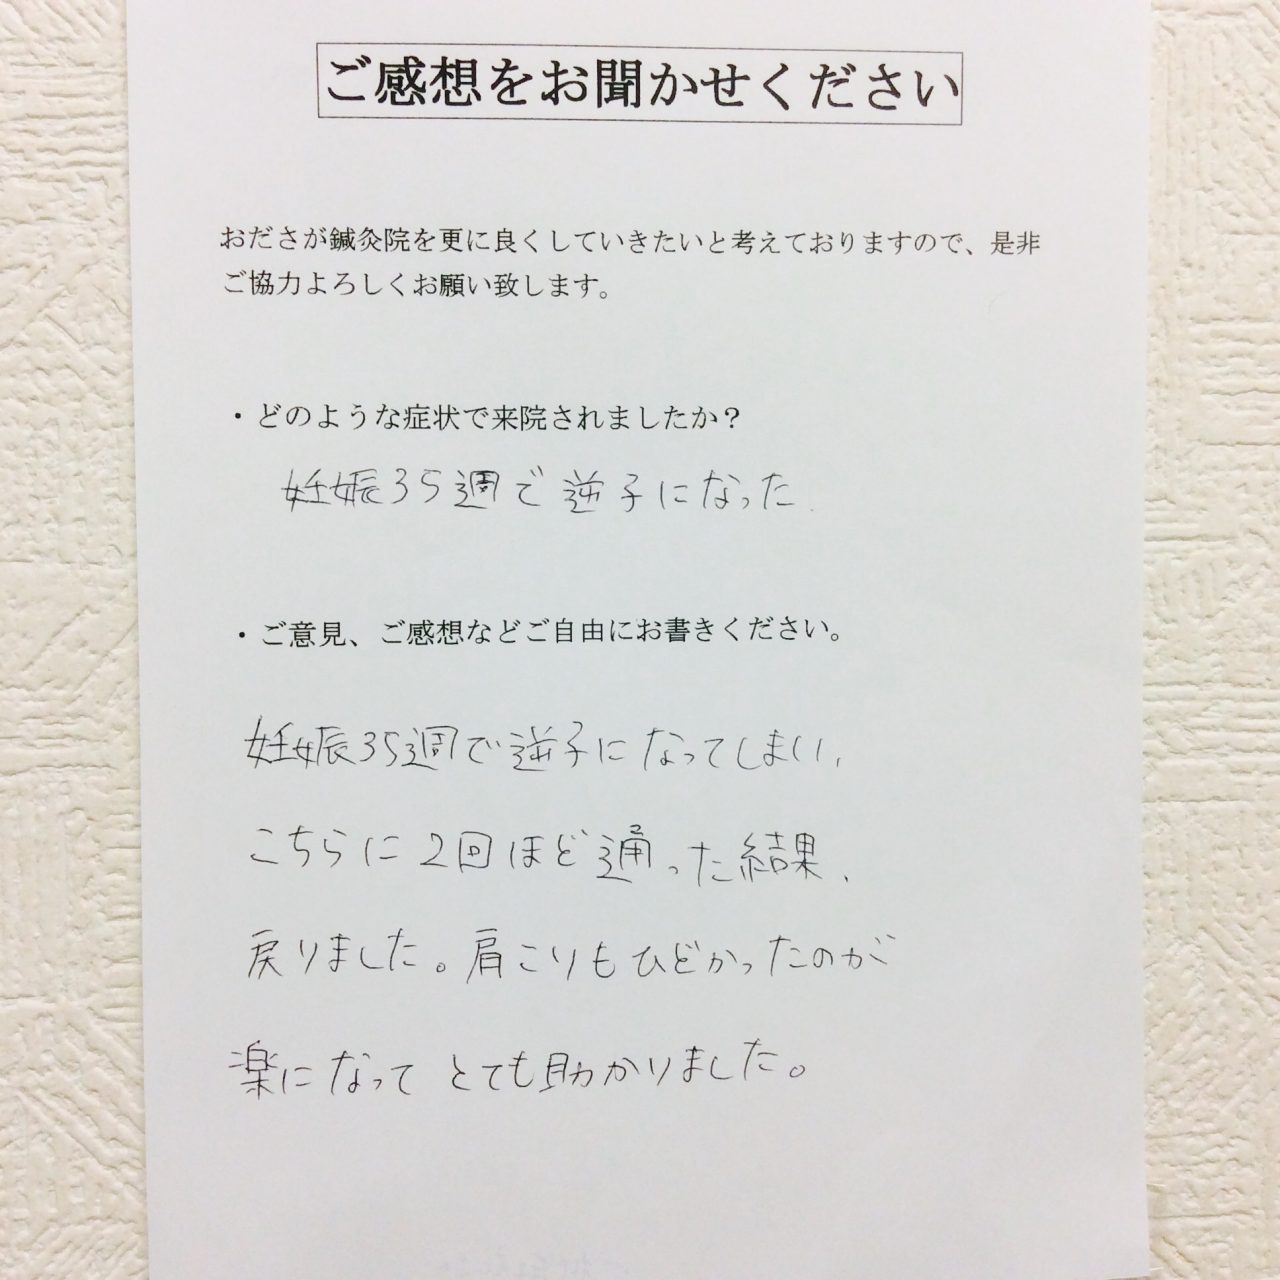 ご感想をお聞かせください
おださが鍼灸院を更に良くしていきたいと考えておりますので、是非
ご協力よろしくお願い致します。
・どのような症状で来院されましたか？
妊娠35週で逆子になった
・ご意見、ご感想などご自由にお書きください。
妊娠35週で逆子になってしまい、
こちらに2回ほど通った結果、
戻りました。肩こりもひどかったのが
楽になって とても助かりました。